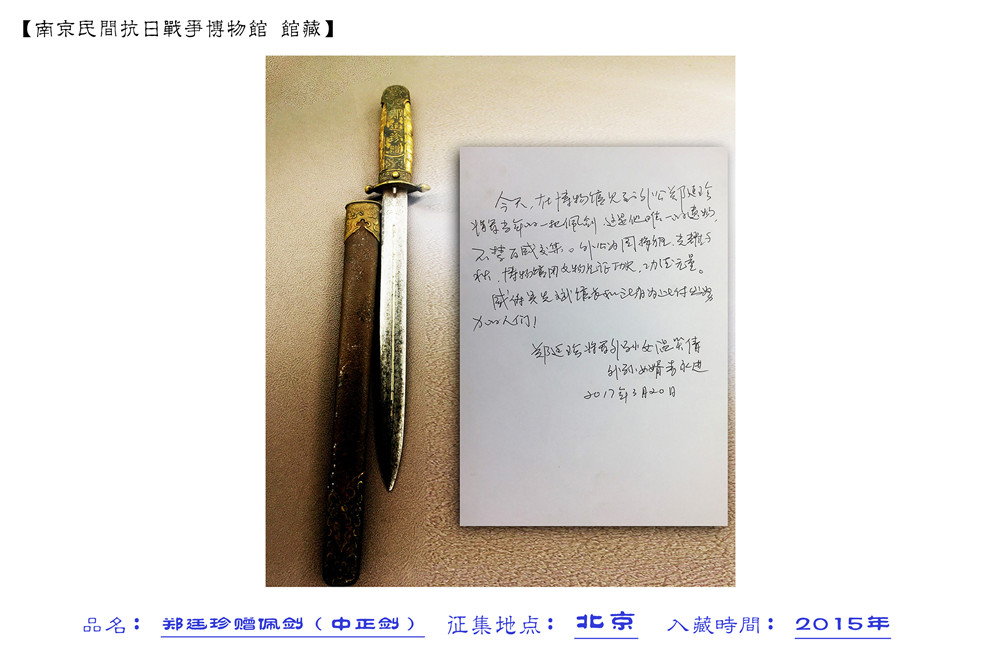 【南京民間抗日戰爭博物館 館藏】
郝廷珍贈
今天,在博物馆见到外公郑廷珍
将军当年的一把佩剑,这是他唯一的遗物,
不禁百感交集。外公为国捐躯,光耀千
秋,博物馆用文物见证历史,功德无量。
感谢吴先斌馆长和所有为此付出努
力的人们!
郑廷珍将军外孙女温笑倩
外孙女婿李永进
2017年3月20日
品名: 郑廷珍赠佩剑(中正剑) 征集地点: 北京 入藏時間: 2015年